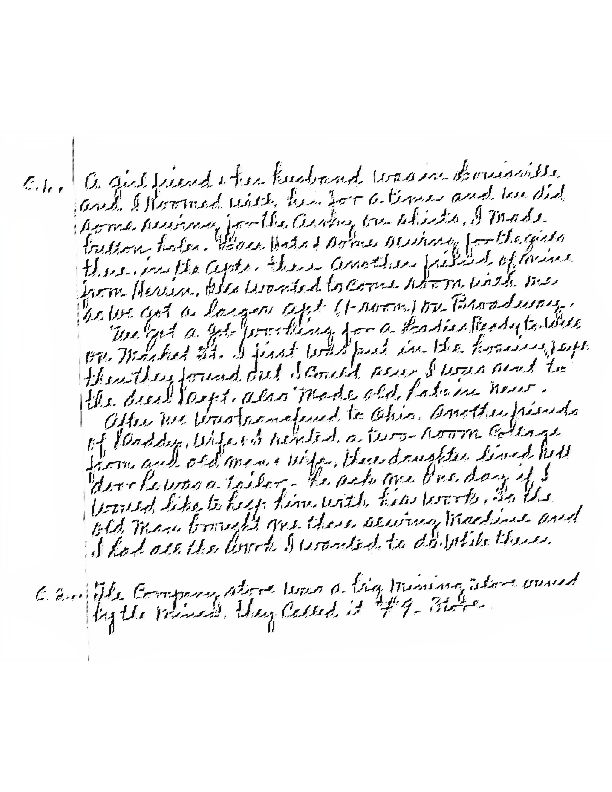 C.1.. A girl friend & her husband was in Louisville
and I Roomed with her for a time and we did
some sewing for the Army on shirts. I Made
button holes. Also some sewing for the girls
there in the Apts. then Another friend of mine
from Herrin, Ill wanted to come room with me
so we got a larger apt (1-room) on Broadway.
We got a job working for a Ladies Ready to Wear
on Market St. I first was put in the hosiery dept
then they found out I could sew I was sent to
the dept. also Made old hats in new.
After we was transfered to Ohio. Another friends
of Daddy, Wife & I rented a two-room Cottage
from and old man & wife, there daughter lived next
door he was a tailor. He ask me One day if I
would like to help him with his work. So the
old Man brought me there sewing Machine and
I had all the work I wanted to do while there.
C.2.. The Company store was a big Mining store owned
by the Mines. they Called it #9- Store.